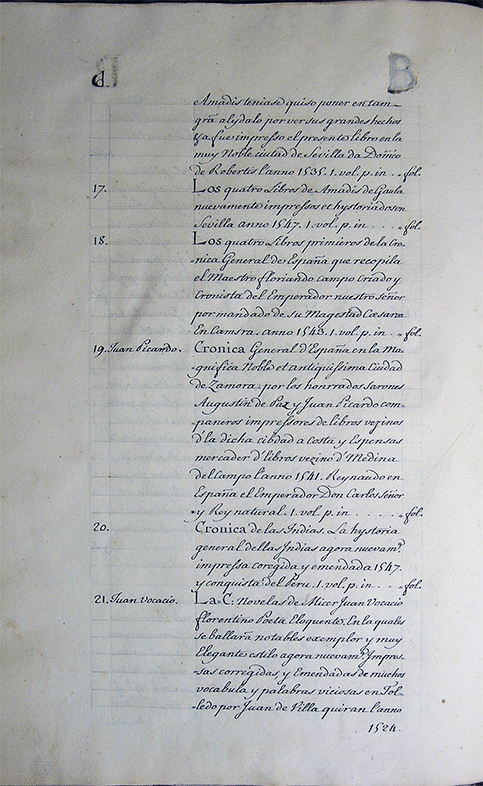 d. B
Amadis teniase quiso poner en tam-
gra alsydalo por ver sus grandes hechos
ya fue impresso el presente libro en la
muy Noble ciutad de Sevilla da Domco
de Robertis l'anno 1535. 1. vol. p. in . . fol.
17. Los quatro Libros de Amadis de Gaula
nuevamente impressos et hystoriados en
Sevilla anno 1547. 1. vol. p. in . . . . fol.
18. Los quatro Libros primieros de la Cro-
nica General de España que recopila
el Maestro floriando campo criado y
Cronista del Emperador nuestro señor
por mandado de su Magestad Cæsarea
En Camsra. anno 1543. 1. vol. p. in . . fol.
19. Juan Picardo. Cronica General d'España en la Ma-
gnifica Noble et antiquissima Ciudad
de Zamora: por los honrrados Varones
Augustin de Paz y Juan Picardo com-
paneros impressores de libros vezinos
d'la dicha cibdad a costa y Espensas
mercader d'libros vezino d'Medina
del Campo l'anno 1541. Reynando en
España el Emperador Don Carlos Señor
y Rey natural. 1. vol. p. in . . . . . fol.
20. Cronica de las Indias. La hystoria
general dellas Indias agora nuevamte.
impressa coregida y emendada 1547.
y conquista del Peru. 1. vol. p. in . . fol.
21. Juan Vocacio. La C: Novelas de Micer Juan Vocacio
florentino Poeta Eloquente. En la quales
se ballara notables exemplor y muy
Elegante estilo agora nuevamte. Impres-
sas corregidas, y Emendadas de muchos
vocabula y palabras viciosas en Tol-
ledo por Juan de Villa quiran l'anno
1524.